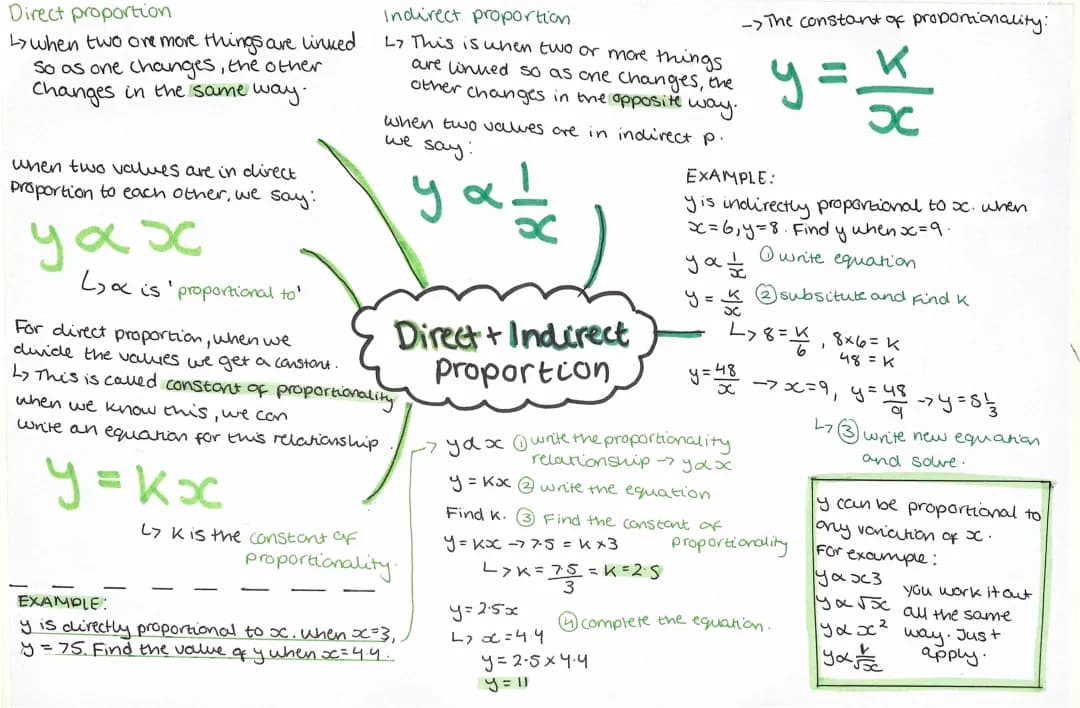 Direct proportion
↳ when two or more things are linked
so as one changes, the other
changes in the same way.
when two values are in direct
proportion to each other, we say:
y ∝ x
↳ ∝ is 'proportional to'
For direct proportion, when we
divide the values we get a constant.
↳ This is called constant of proportionality
when we know this, we can
write an equation for this relationship.
y = Kx
↳ K is the constant of
proportionality.
EXAMPLE:
y is directly proportional to x. when x=3,
y = 75. Find the value of y when x=4.4.
Indirect proportion
↳ This is when two or more things
are linked so as one changes, the
other changes in the opposite way.
when two values are in indirect p.
we say:
y ∝ 1/x
Direct + Indirect
proportion
→ y ∝ x ① write the proportionality
relationship → y ∝ x
y = Kx ② write the equation
Find K. ③ Find the constant of
proportionality
y = Kx → 7.5 = K × 3
↳ K = 7.5/3 = K = 2.5
y = 2.5x
④ complete the equation.
↳ x = 4.4
y = 2.5 × 4.4
y = 11
→ The constant of proportionality:
y = K/x
EXAMPLE:
y is indirectly proportional to x. when
x=6, y=8. Find y when x=9.
y ∝ 1/x ① write equation
y = K/x ② subsitute and find K
↳ 8 = K/6, 8×6 = K
48 = K
y = 48/x → x=9, y = 48/9 → y = 5 1/3
↳ ③ write new equation
and solve.
y can be proportional to
any variation of x.
For example:
y ∝ x3
y ∝ √x
y ∝ x²
y ∝ 1/√x
you work it out
all the same
way. Just
apply.